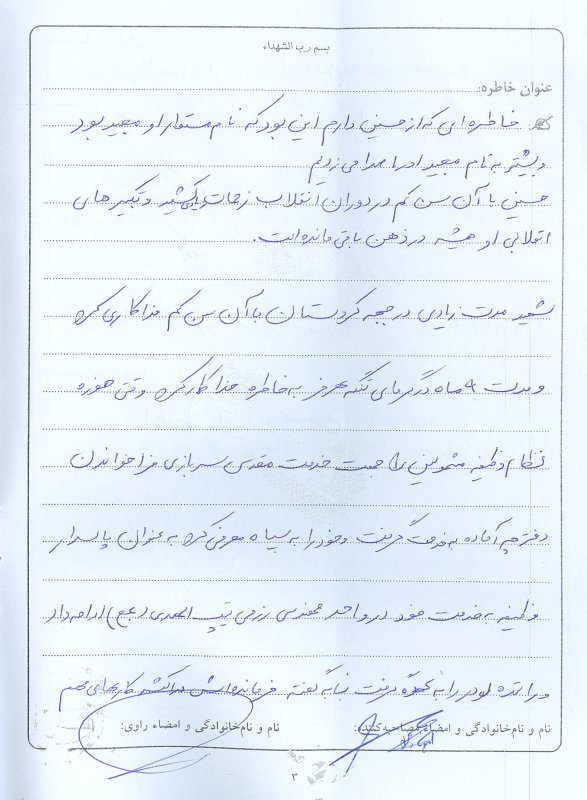 بسم رب الشهداء
عنوان خاطره:
خاطره ای که از حسین دارم این بود که نام مستعار او مجید بود
و بیشتر به نام مجید او را صدا می زدیم
حسین با آن سن کم در دوران انقلاب زحمات کشید و تکبیر های
انقلابی او همیشه در ذهن باقی مانده است.
شهید مدت زیادی در جبهه کردستان با آن سن کم فداکاری کرد
و مدت ۹ ماه در گرمای تنگه هرمز به خاطره خدا کار کرد وقتی حوزه
نظام وظیفه مشمولین را جهت خدمت مقدس سربازی فرا خواندن
دفترچه آماده به خدمت گرفت و خود را به سپاه معرفی کرد به عنوان پاسدار
وظیفه به خدمت خود در واحد مهندسی رزمی تیپ المهدی (عج) ادامه داد
و راننده لودر را به عهده گرفت بنا به گفته فرمانده اش کارهای مهم
نام و نام خانوادگی و امضاء مصاحبه کننده:
نام و نام خانوادگی و امضاء راوی:
۳